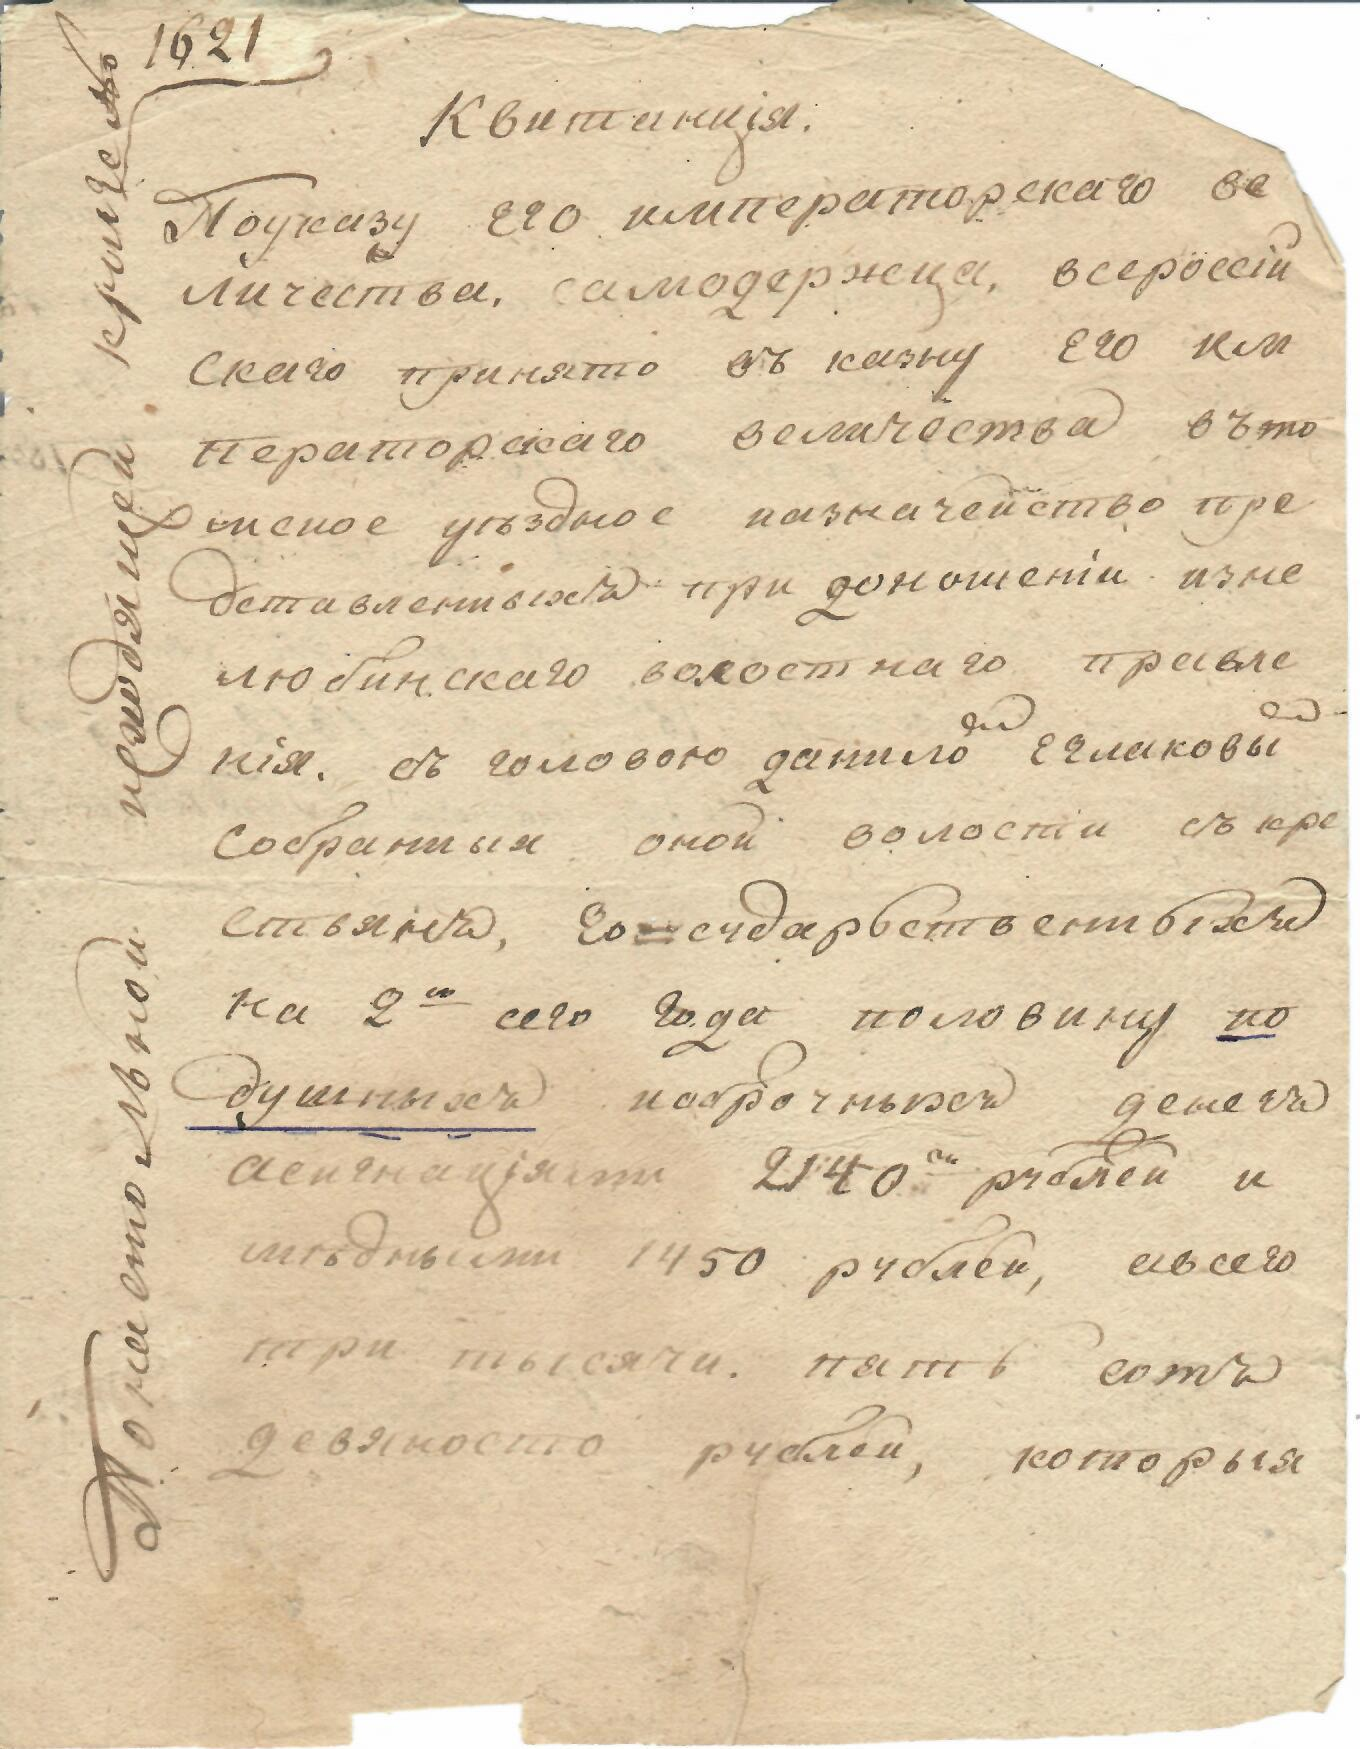 1621
Квитанція.
Поуказу Его императорскаго ве
личества, самодержца, всеросій
скаго принято въ казну Его им
ператорскаго величества въто
мское уѣздное казначейство пре
дставленныхъ при доношеніи изне
любинскаго волостнаго правле
нія. съ головою даниломъ Еглаковымъ
собранныя оной волости съ кре
стьянъ, государьственныхъ
на 2ю сего года половину по
душныхъ иоброчныхъ денегъ
асигнаціями 2140ть рублей и
мѣдными 1450 рублей, авсего
три тысячи. пять сотъ
девяносто рублей, которыя